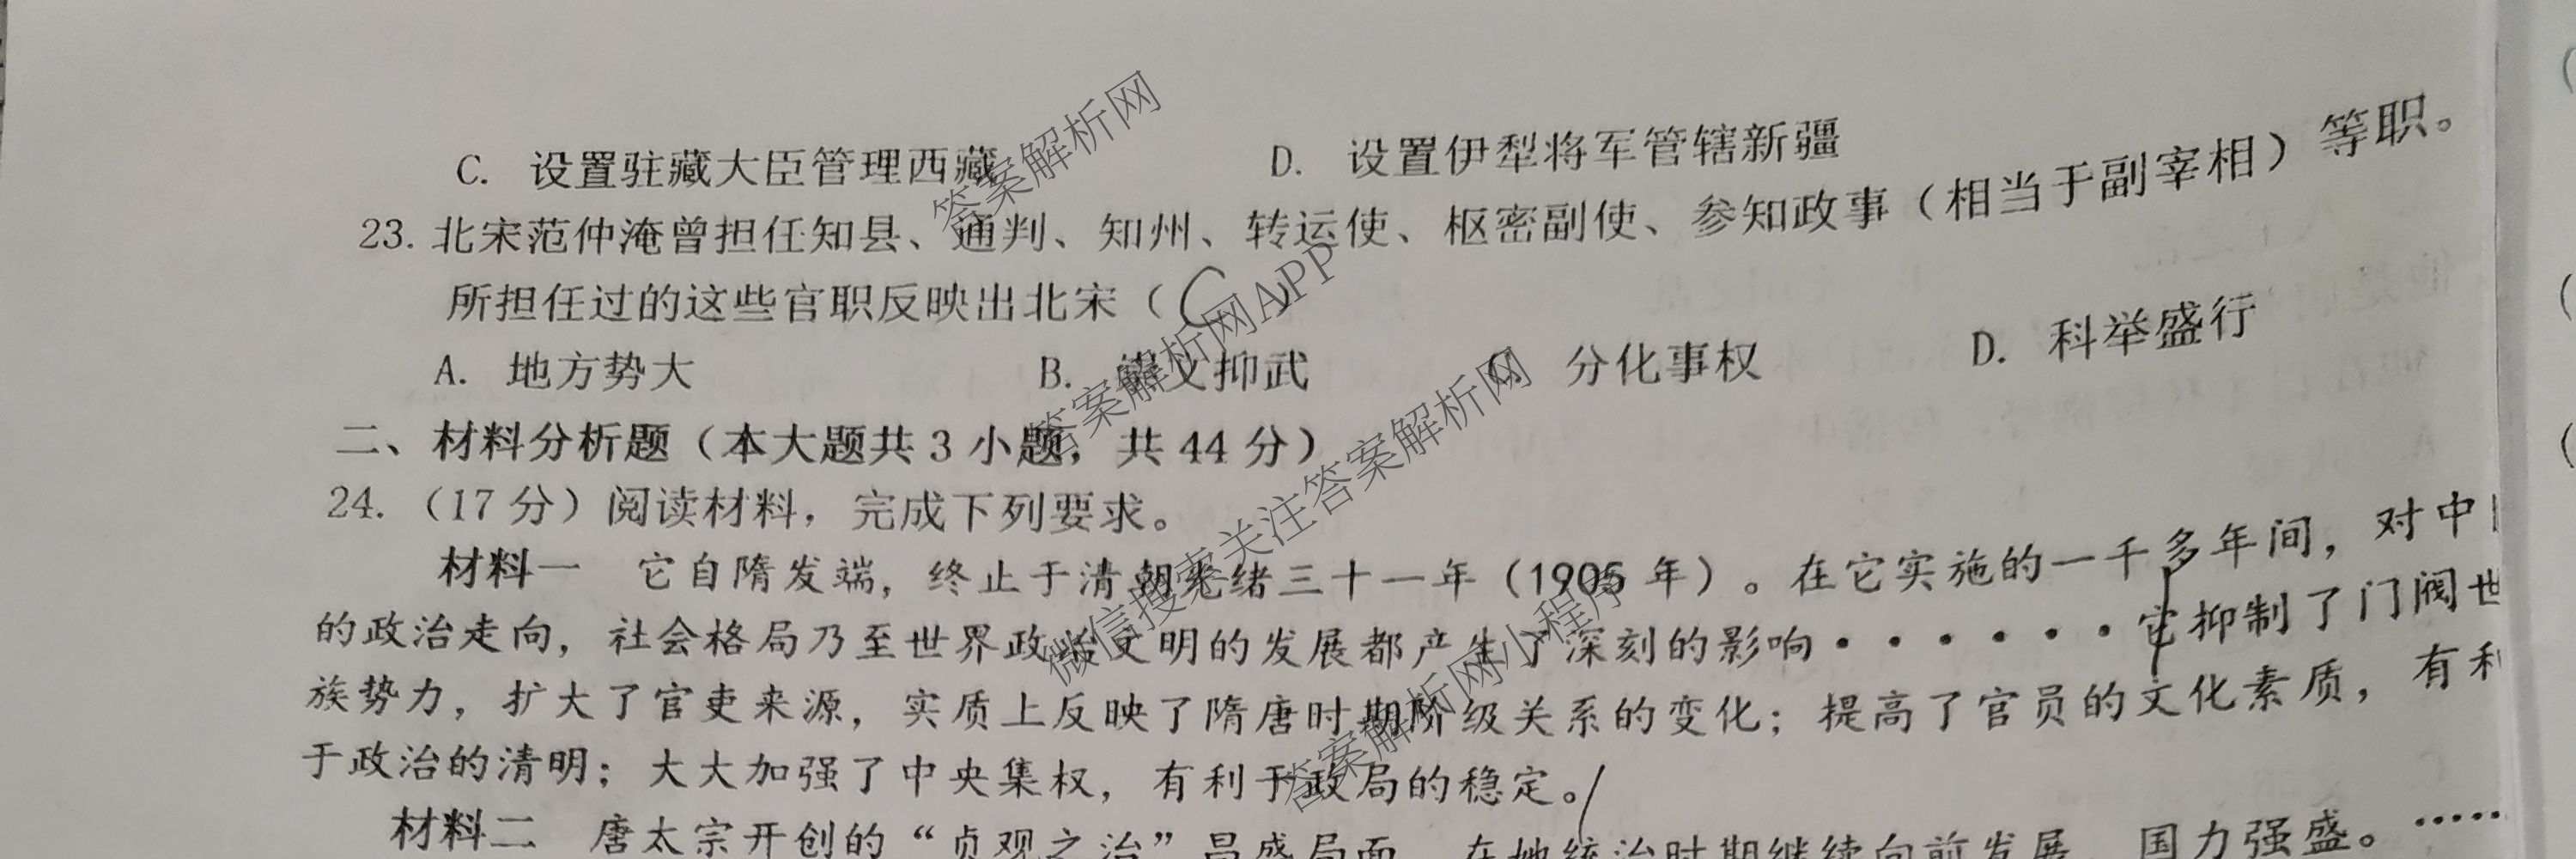 C. 设置驻藏大臣管理西藏 D. 设置伊犁将军管辖新疆
23. 北宋范仲淹曾担任知县、通判、知州、转运使、枢密副使、参知政事（相当于副宰相）等职。
所担任过的这些官职反映出北宋（C）
A. 地方势大 B. 崇文抑武 C. 分化事权 D. 科举盛行
二、材料分析题（本大题共 3 小题，共 44 分）
24.（17 分）阅读材料，完成下列要求。
材料一 它自隋发端，终止于清朝光绪三十一年（1905 年）。在它实施的一千多年间，对中
的政治走向，社会格局乃至世界政治文明的发展都产生了深刻的影响······它抑制了门阀世
族势力，扩大了官吏来源，实质上反映了隋唐时期阶级关系的变化；提高了官员的文化素质，有利
于政治的清明；大大加强了中央集权，有利于政局的稳定。
材料二 唐太宗开创的“贞观之治”昌盛局面，在她统治时期继续向前发展，国力强盛。……
答案解析网
答案解析网APP
微信搜索关注答案解析网
答案解析网小程序